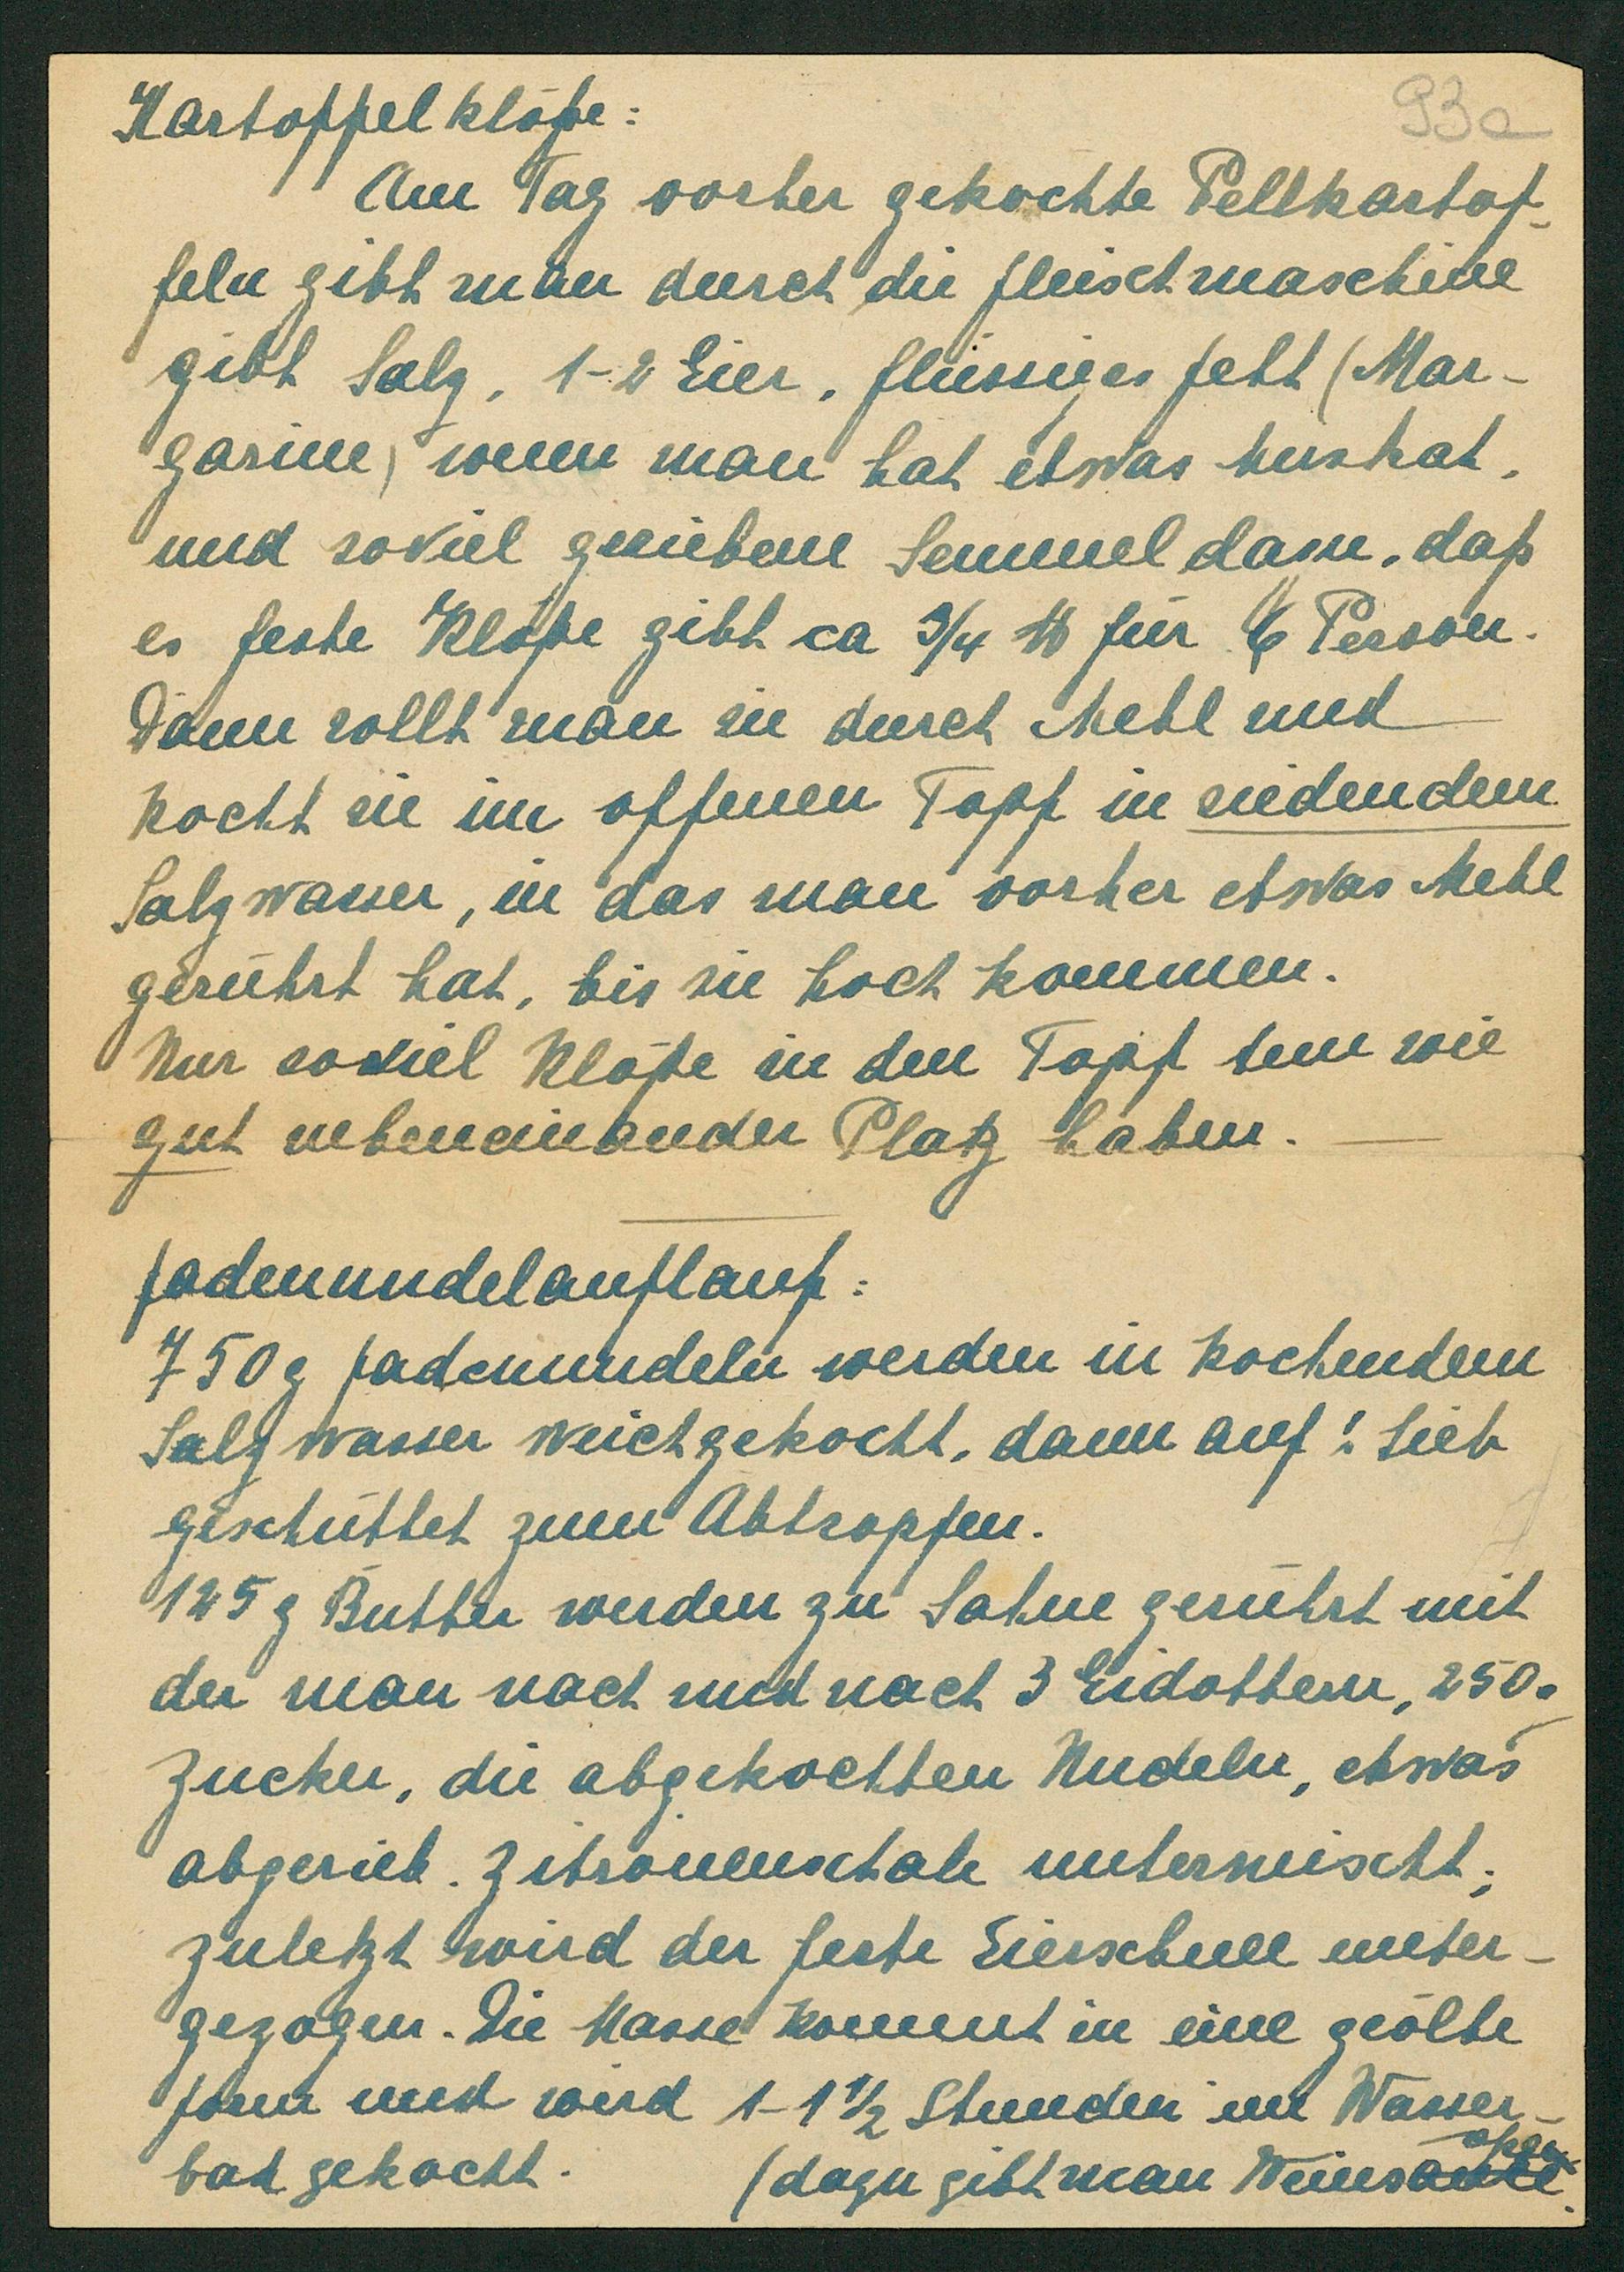 93a
Kartoffelklöße:
Am Tag vorher gekochte Pellkartof-
feln gibt man durch die Fleischmaschine
gibt Salz, 1-2 Eier, flüssiges Fett (Mar-
garine) wenn man hat etwas Muskat,
und soviel geriebene Semmel dazu, daß
es feste Klöße gibt ca 3/4 ℔ für 6 Person.
Dann rollt man sie durch Mehl und
kocht sie im offenen Topf in siedendem
Salzwasser, in das man vorher etwas Mehl
gerührt hat, bis sie hoch kommen.
Nur soviel Klöße in den Topf tun wie
gut nebeneinander Platz haben. —
Fadennudelauflauf:
750 g Fadennudeln werden in kochendem
Salzwasser weichgekocht, dann auf ! Sieb
geschüttet zum Abtropfen.
125 g Butter werden zu Sahne gerührt mit
der man nach und nach 3 Eidottern, 250.
Zucker, die abgekochten Nudeln, etwas
abgerieb. Zitronenschale untermischt;
zuletzt wird der feste Eierschnee unter-
gezogen. Die Masse kommt in eine geölte
Form und wird 1-1 1/2 Stunden im Wasser-
bad gekocht. (dazu gibt man Wein